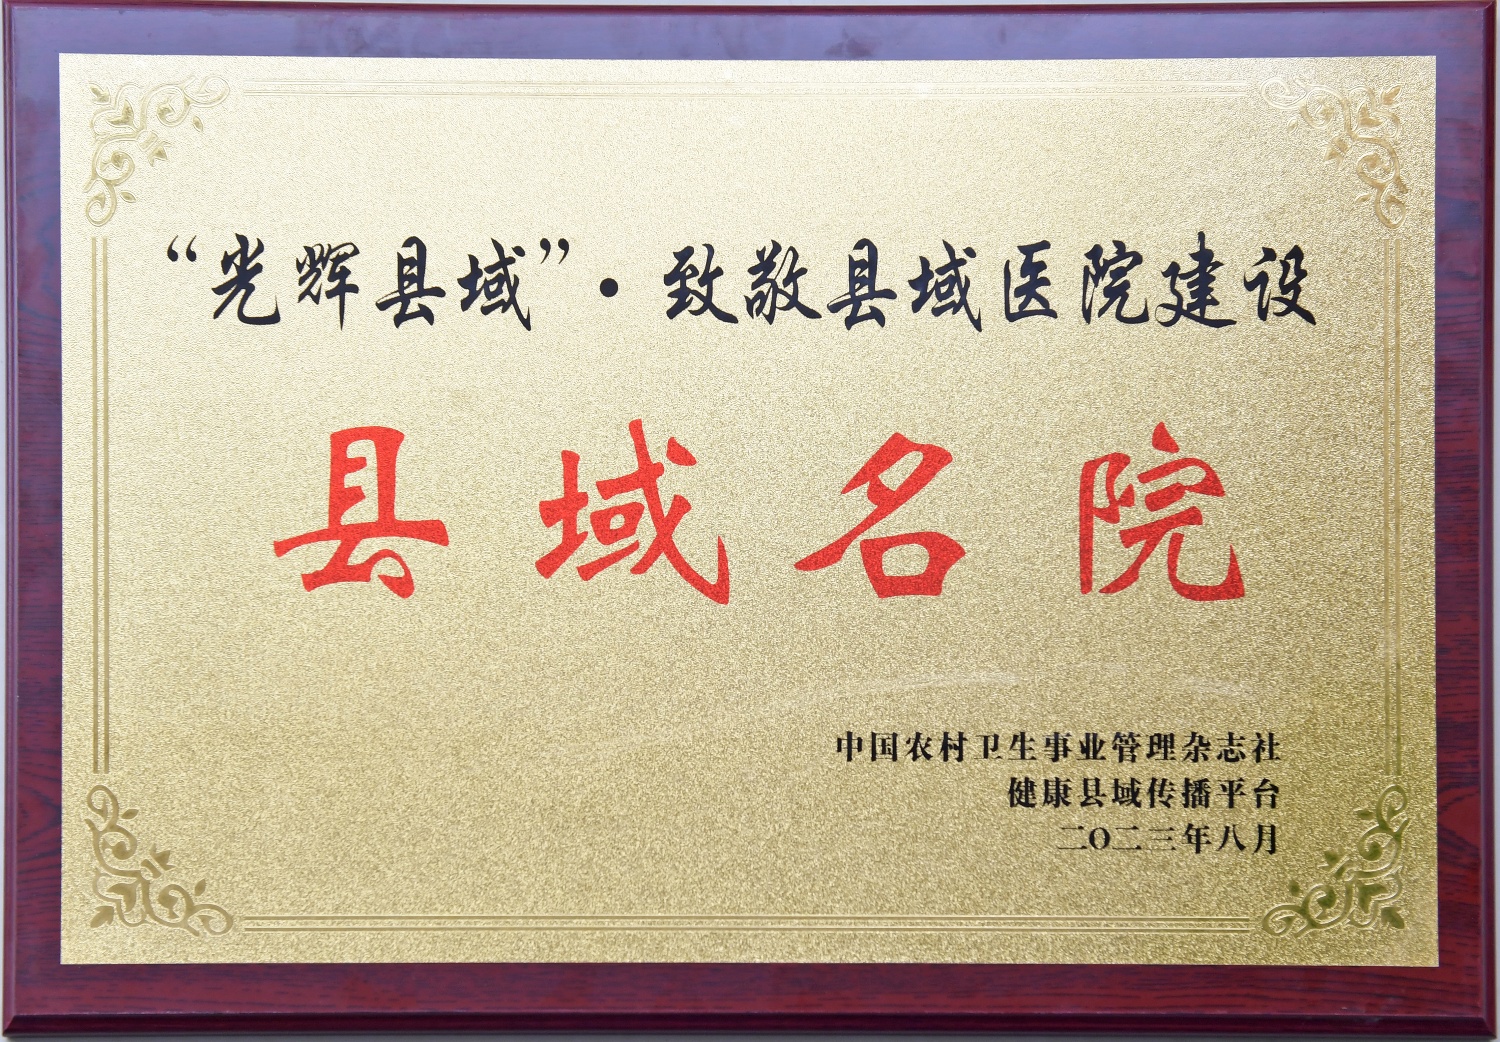 “光辉县域”·致敬县域医院建设
县域名院
中国农村卫生事业管理杂志社
健康县域传播平台
二〇二三年八月